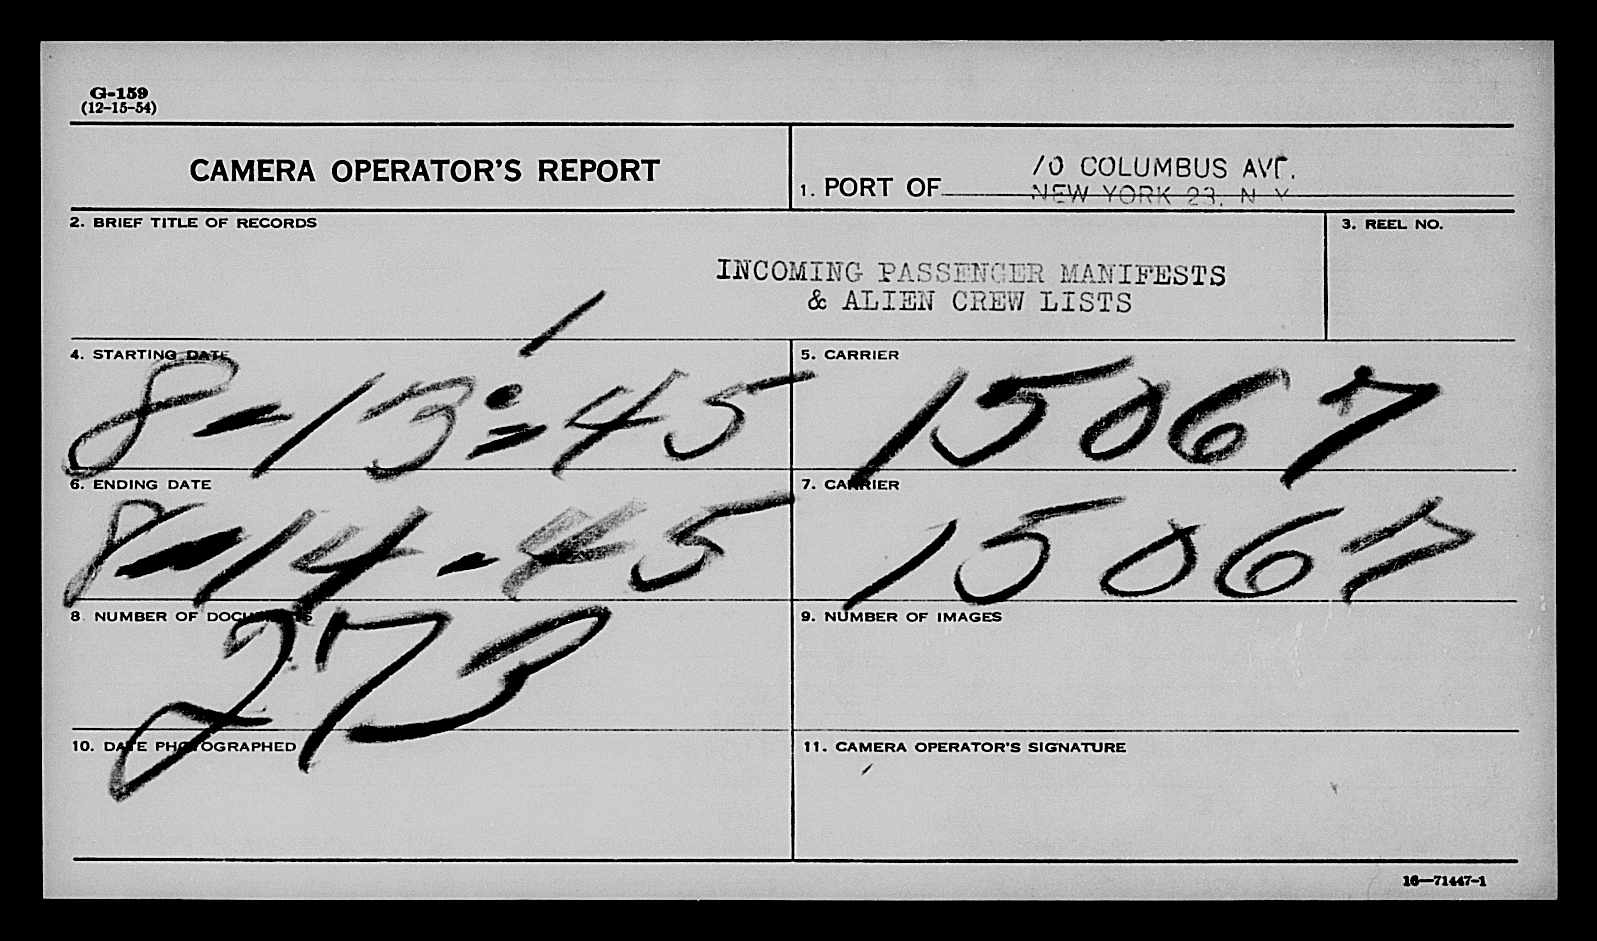 G-159
(12-15-54)
CAMERA OPERATOR'S REPORT
1. PORT OF
10 COLUMBUS AVE.
NEW YORK 23, N Y
2. BRIEF TITLE OF RECORDS
INCOMING PASSENGER MANIFESTS
& ALIEN CREW LISTS
3. REEL NO.
4. STARTING DATE
8-13-45
5. CARRIER
15067
6. ENDING DATE
8-14-45
7. CARRIER
15067
8. NUMBER OF DOCUMENTS
273
9. NUMBER OF IMAGES
10. DATE PHOTOGRAPHED
11. CAMERA OPERATOR'S SIGNATURE
16—71447-1